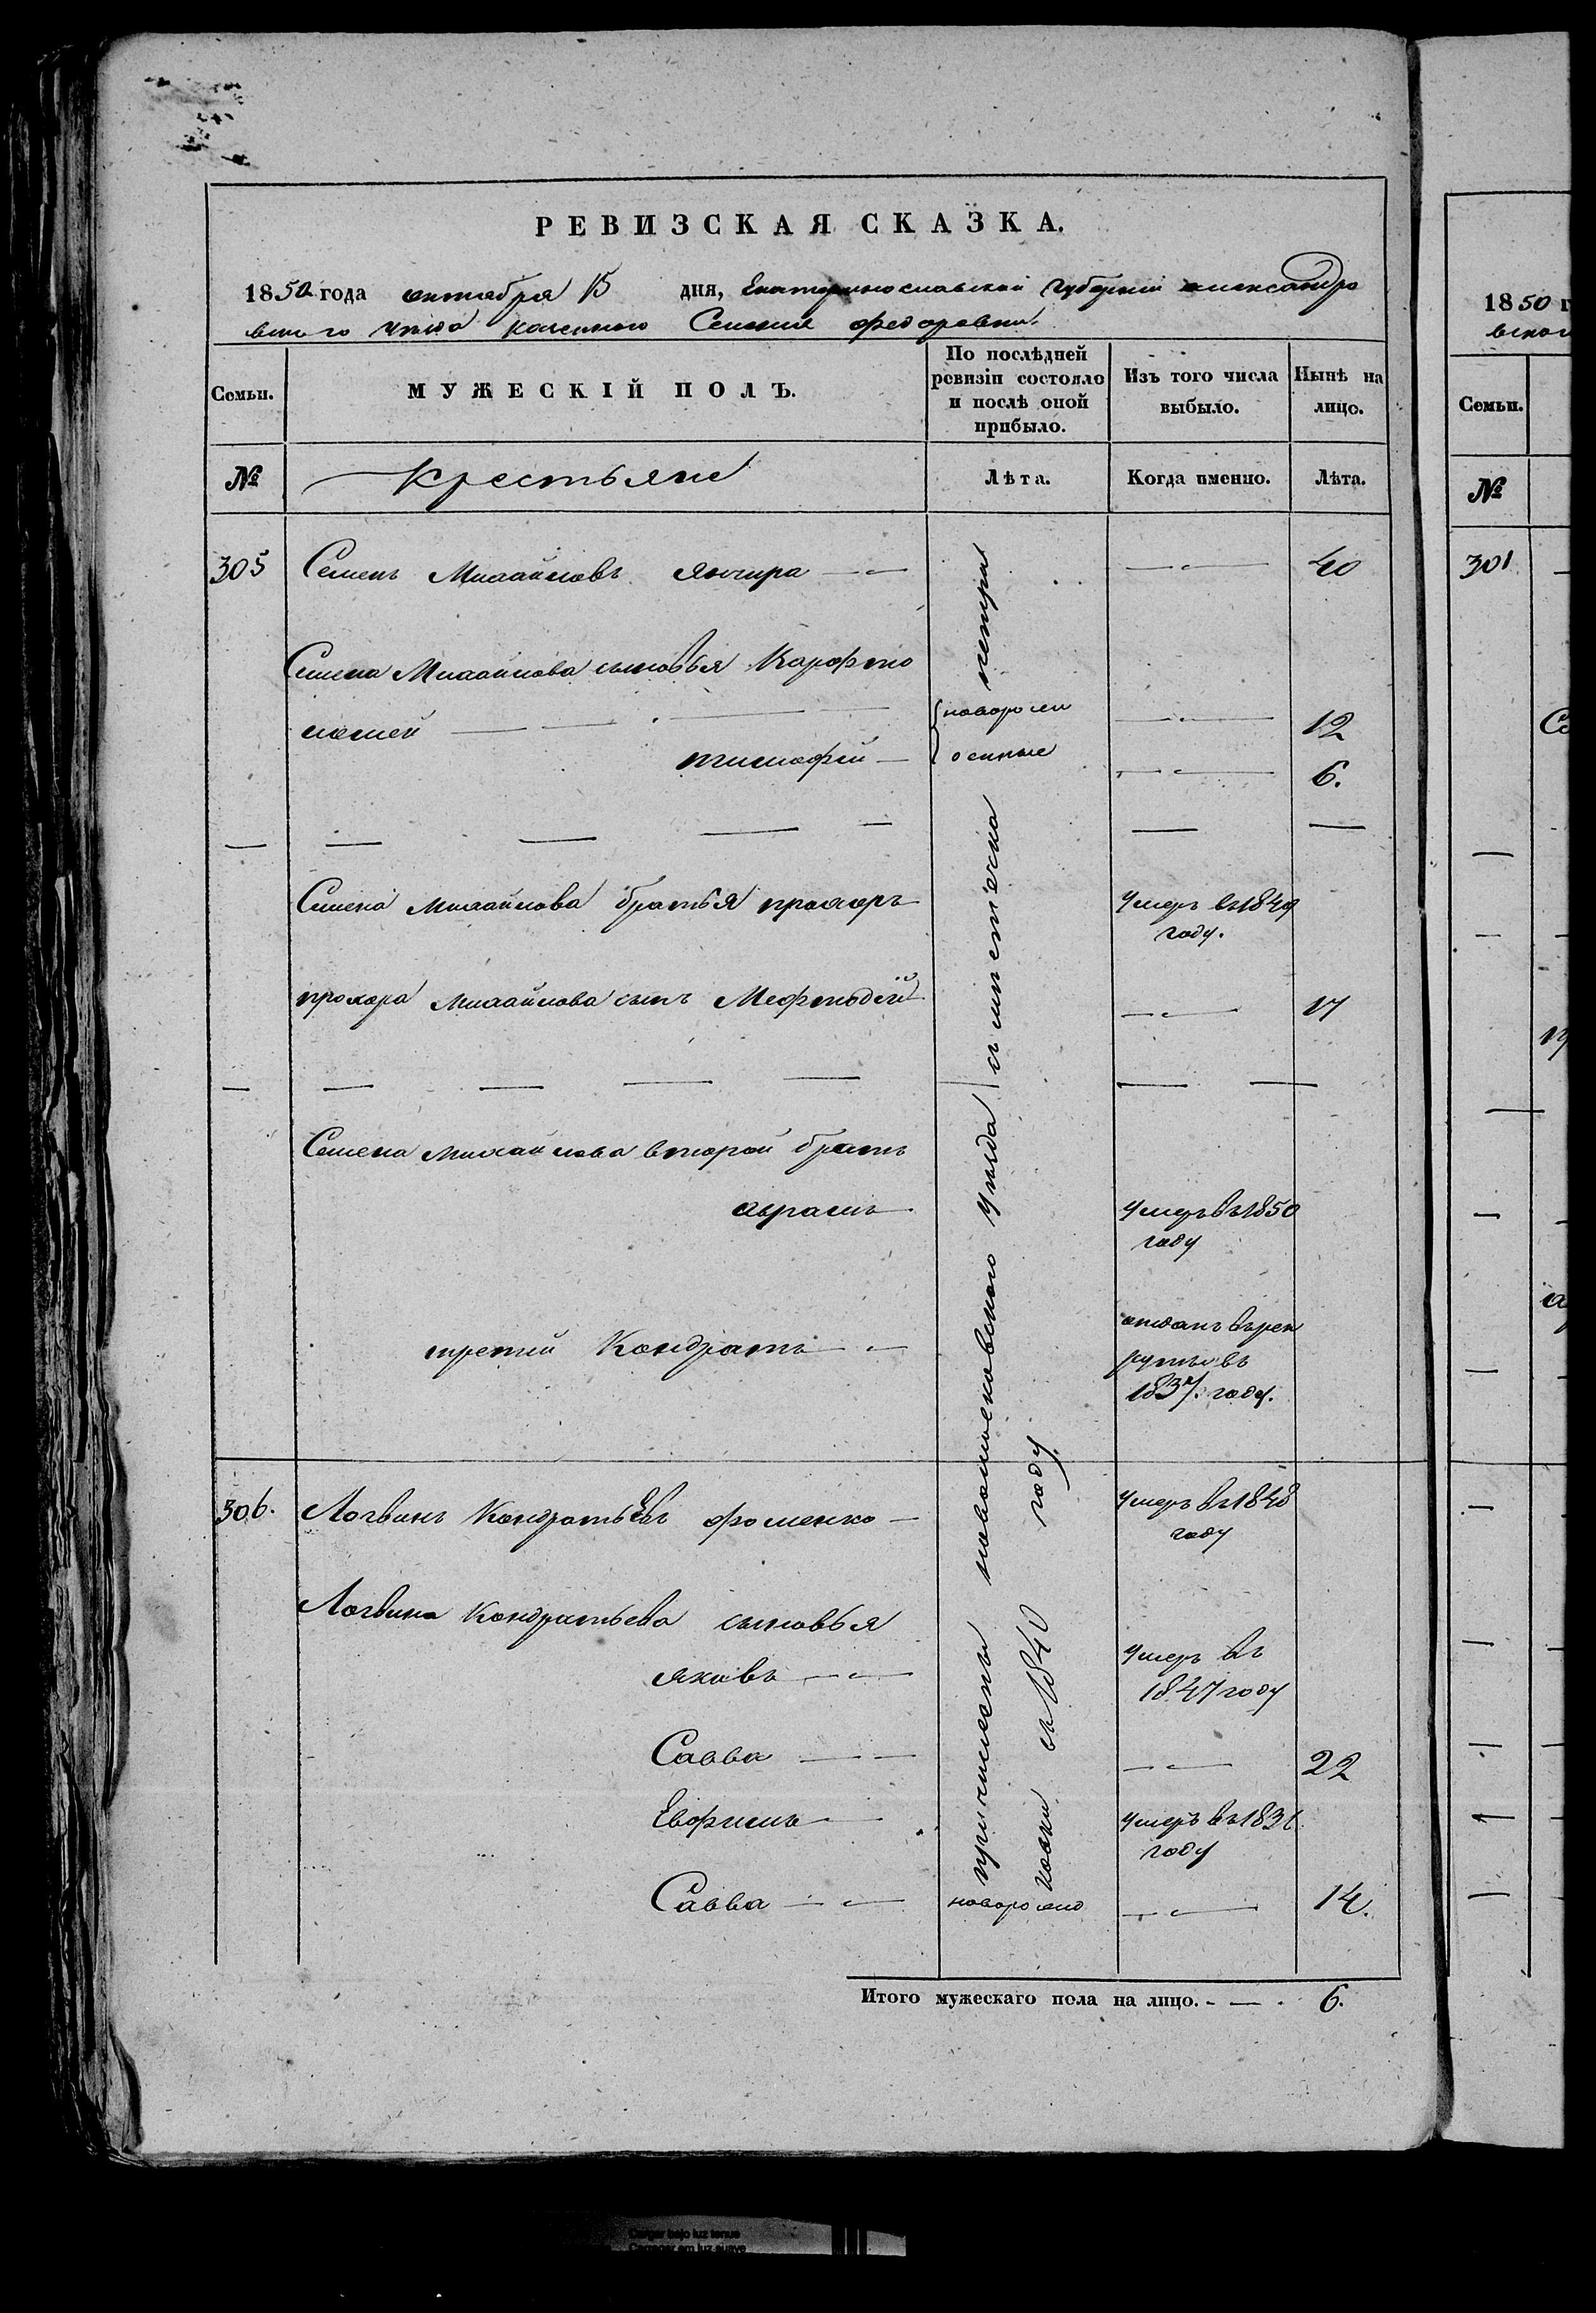 РЕВИЗСКАЯ СКАЗКА.
1850 года октября 15 дня, Екатеринославской губерніи александро
вскаго уѣзда казенного Селенія федоровки.
Семьи.
МУЖЕСКІЙ ПОЛЪ.
По послѣдней ревизіи состояло и послѣ оной прибыло.
Изъ того числа выбыло.
Нынѣ на лицо.
№
Крестьяне
Лѣта.
Когда именно.
Лѣта.
305 Семенъ Михайловъ 40
Семена Михайлова сыновья Варфто
ломей 12
тимофей 6.
новорожд
енные
Семена Михайлова братья прохоръ умеръ въ 1849
году.
прохора Михайлова сынъ Мефтодій 17
Семена Михайлова второй братъ
аврамъ умеръ въ 1850
году
третій Кондратъ отданъ в рек
руты въ
1837 году.
306. Логвинъ Кондратьевъ фоменко умеръ въ 1848
году
Логвина Кондратьева сыновья
яковъ умеръ въ
1847 году
Савва 22
Евфимъ умеръ въ 183
году
Савва новорожд 14.
причислены новомосковского уѣзда съ петри
ковки въ 1840 году.
Итого мужескаго пола на лицо. 6.
1850 г
вског
Семьи.
№
301